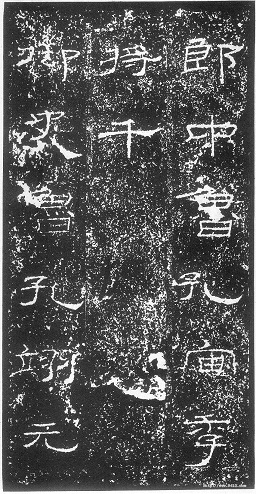 郎中魯孔宙季
將千
御史魯孔翊元